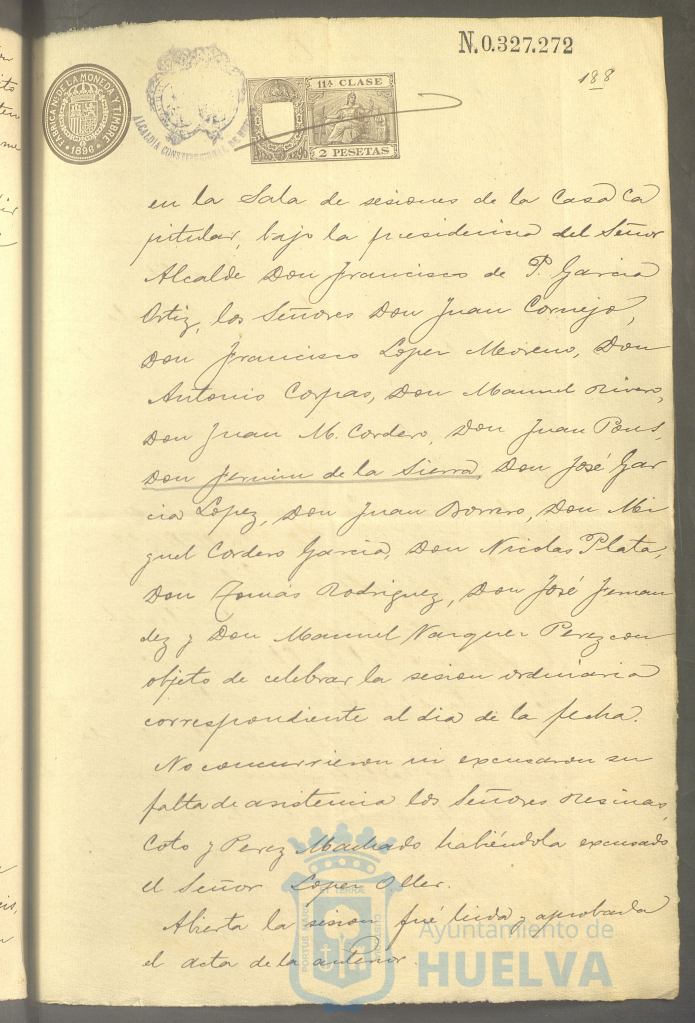 N.0.327.272
188
FABRICA N. DE LA MONEDA Y TIMBRE
1896
ALCALDIA CONSTITUCIONAL DE
11ª CLASE
2 PESETAS
en la Sala de sesiones de la Casa Ca
pitular, bajo la presidencia del Señor
Alcalde Don Francisco de P. Garcia
Ortiz, los Señores Don Juan Cornejo,
Don Francisco Lopez Moreno, Don
Antonio Corpas, Don Manuel Rivero,
Don Juan M. Cordero, Don Juan Pons,
Don Fermin de la Sierra, Don José Gar
cia Lopez, Don Juan Borrero, Don Mi
guel Cordero Garcia, Don Nicolas Plata,
Don Tomás Rodriguez, Don José Fernan
dez y Don Manuel Vazquez Perez con
objeto de celebrar la sesion ordinaria
correspondiente al dia de la fecha.
No concurrieron ni excusaron su
falta de asistencia los Señores Resinas,
Coto y Perez Machado habiéndola excusado
el Señor Lopez Oller.
Abierta la sesion fué leida y aprobada
el acta de la anterior.
Ayuntamiento de
HUELVA